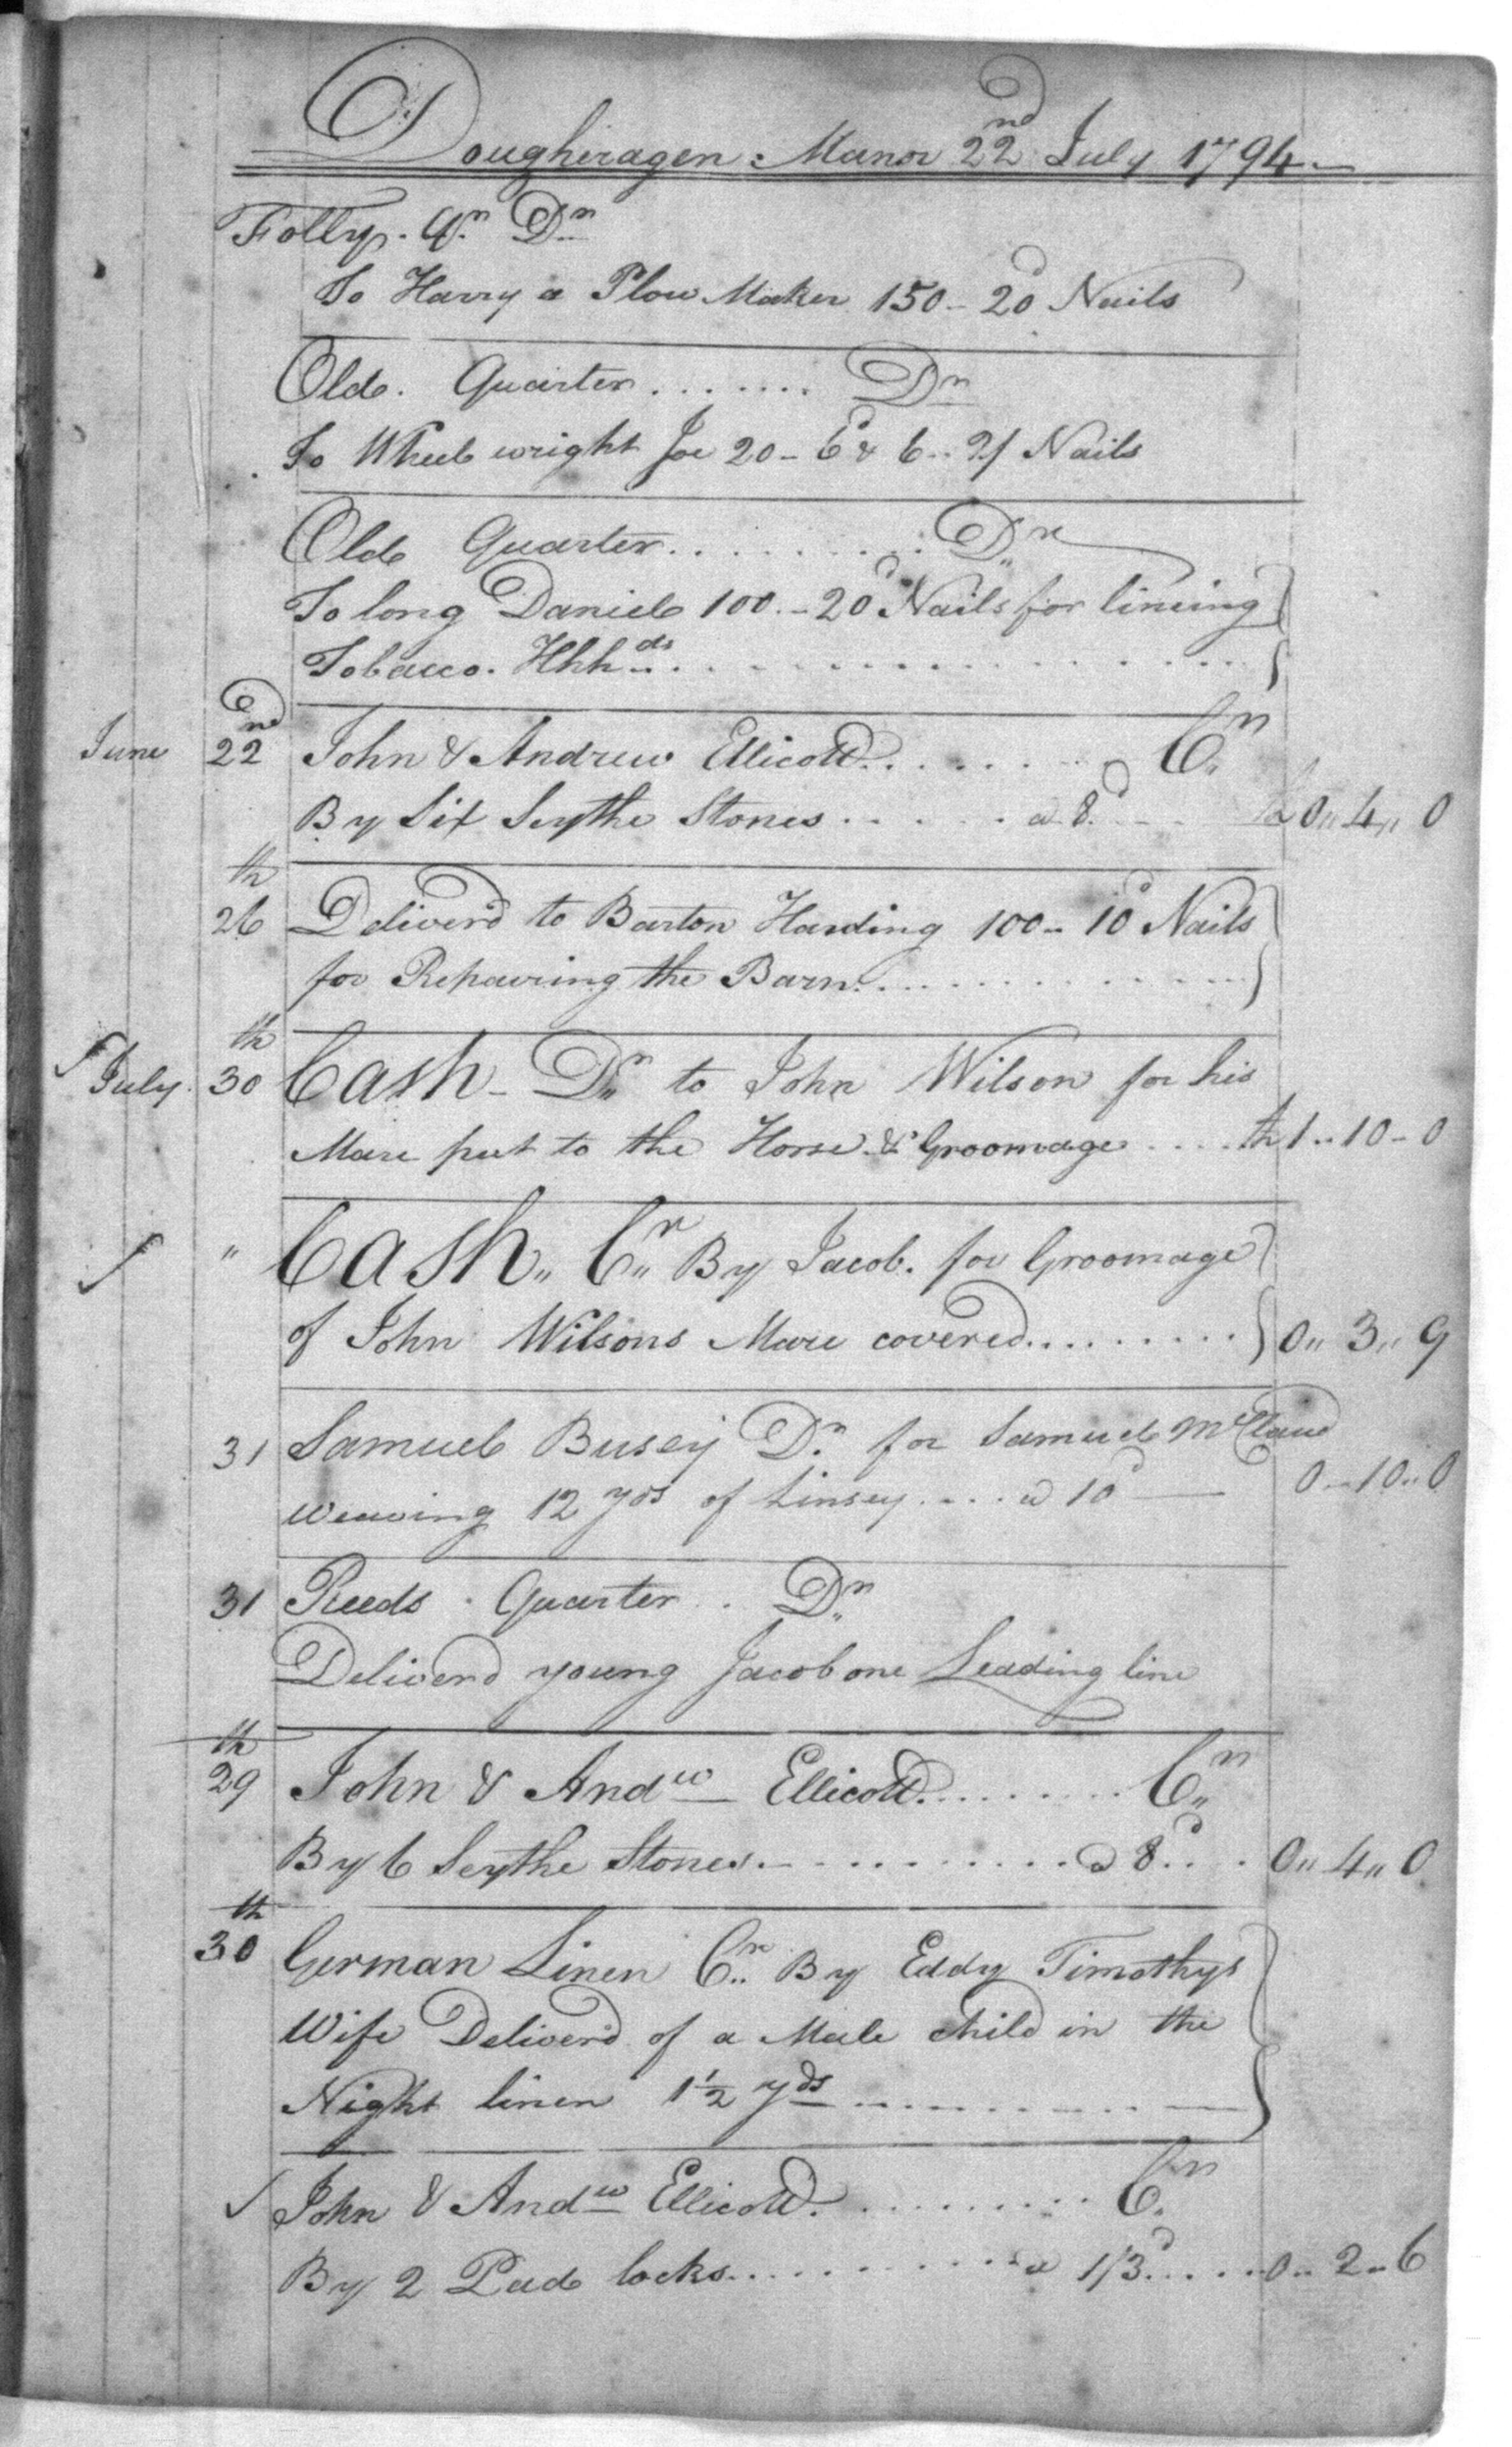 Dougheragen Manor 22nd July 1794
Folly Qr. Dr
To Harry a Plow Maker 150 - 20d Nails
Old Quarter ....... Dr
To Wheel wright Joe 20 - 6d & 6 .. Nails
Old Quarter ......... Dr
To long Daniel 100 - 20d Nails for lineing
Tobacco. Hhhds
June 22nd John & Andrew Ellicott ....... Cr
By Six Sythe Stones ..... a 8d 0,, 4,, 0
26th Deliverd to Barton Harding 100 - 10d Nails
for Repairing the Barn
July 30th Cash - Dr to John Wilson for his
Mare put to the Horse & Groomage .... 1 .. 10 - 0
" Cash,, Cr By Jacob. for Groomage
of John Wilsons Mare covered ........ 0,, 3,, 9
31 Samuel Busey Dr for Samuel McClaud
weaving 12 yds of Linsey .... a 10d 0 - 10 .. 0
31 Reeds Quarter .. Dr
Deliverd young Jacob one Leading line
29th John & Andw Ellicott ........ Cr
By 6 Sythe Stones ......... a 8d ... 0,, 4,, 0
30th German Linen Cr By Eddy Timothys
Wife Deliverd of a Male child in the
Night linen 1½ yds
John & Andw Ellicott ........ Cr
By 2 Pad locks ......... a 1/3d ..... 0 .. 2 .. 6